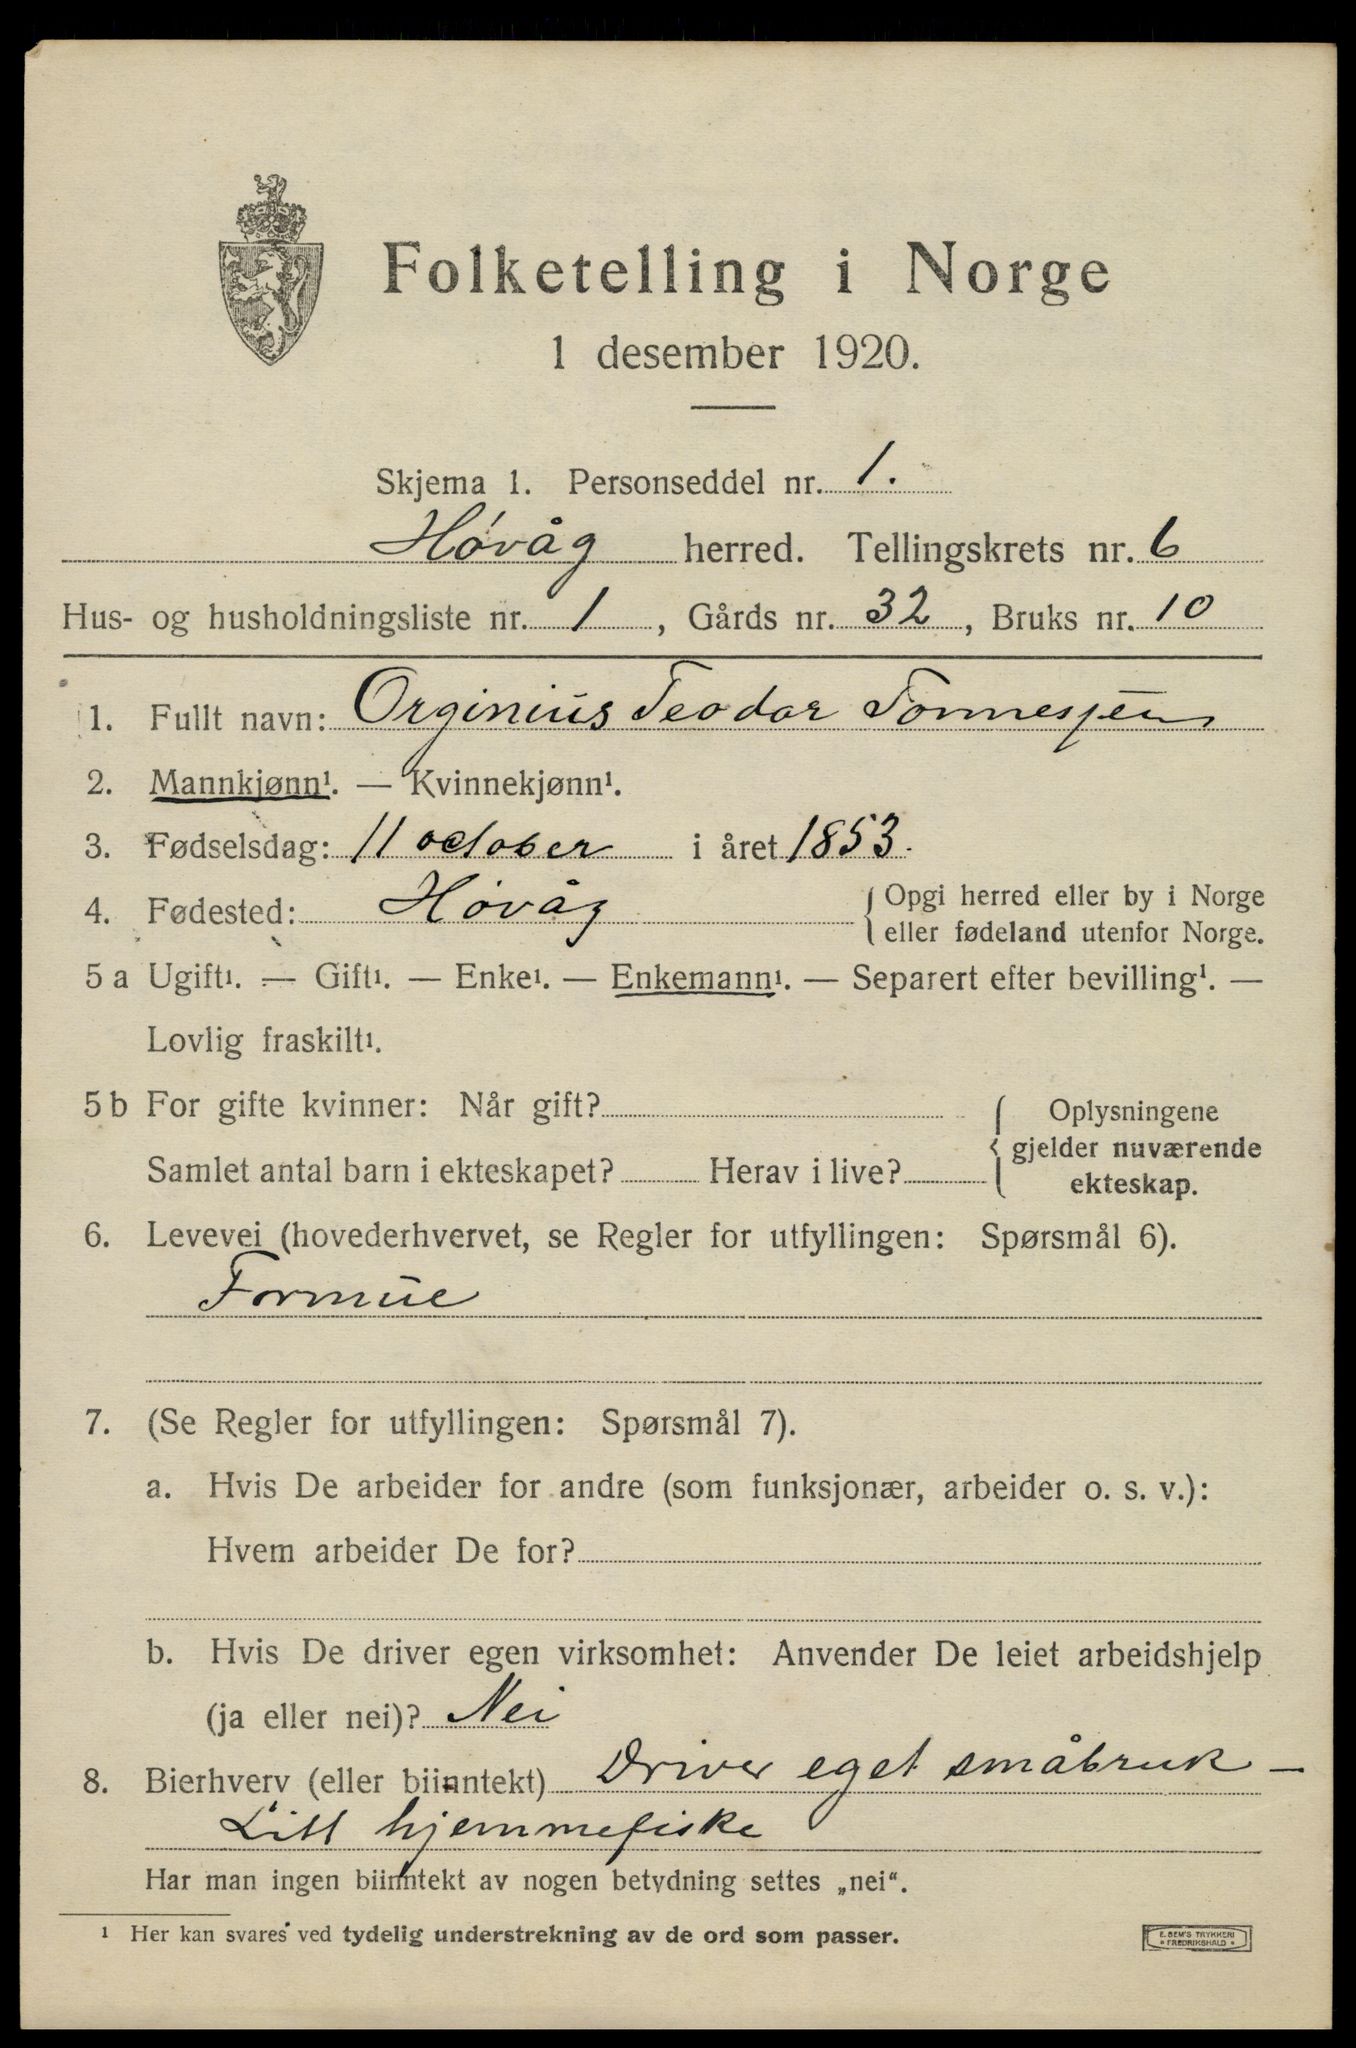 Folketelling i Norge
1 desember 1920.
Skjema 1. Personseddel nr. 1.
Høvåg herred. Tellingskrets nr. 6
Hus- og husholdningsliste nr. 1, Gårds nr. 32, Bruks nr. 10
1. Fullt navn: Orginius Teodor Tønnesen
2. Mannkjønn¹. — Kvinnekjønn¹.
3. Fødselsdag: 11 october i året 1853.
4. Fødested: Høvåg { Opgi herred eller by i Norge
eller fødeland utenfor Norge.
5 a Ugift¹. — Gift¹. — Enke¹. — Enkemann¹. — Separert efter bevilling¹. —
Lovlig fraskilt¹.
5 b For gifte kvinner: Når gift? { Oplysningene
gjelder nuværende
Samlet antal barn i ekteskapet? Herav i live?
ekteskap.
6. Levevei (hovederhvervet, se Regler for utfyllingen: Spørsmål 6).
Formue
7. (Se Regler for utfyllingen: Spørsmål 7).
a. Hvis De arbeider for andre (som funksjonær, arbeider o. s. v.):
Hvem arbeider De for?
b. Hvis De driver egen virksomhet: Anvender De leiet arbeidshjelp
(ja eller nei)? Nei
8. Bierhverv (eller biinntekt) Driver eget småbruk —
Litt hjemmefiske
Har man ingen biinntekt av nogen betydning settes „nei“.
¹ Her kan svares ved tydelig understrekning av de ord som passer.
E. SEM'S TRYKKERI
* FREDRIKSHALD *